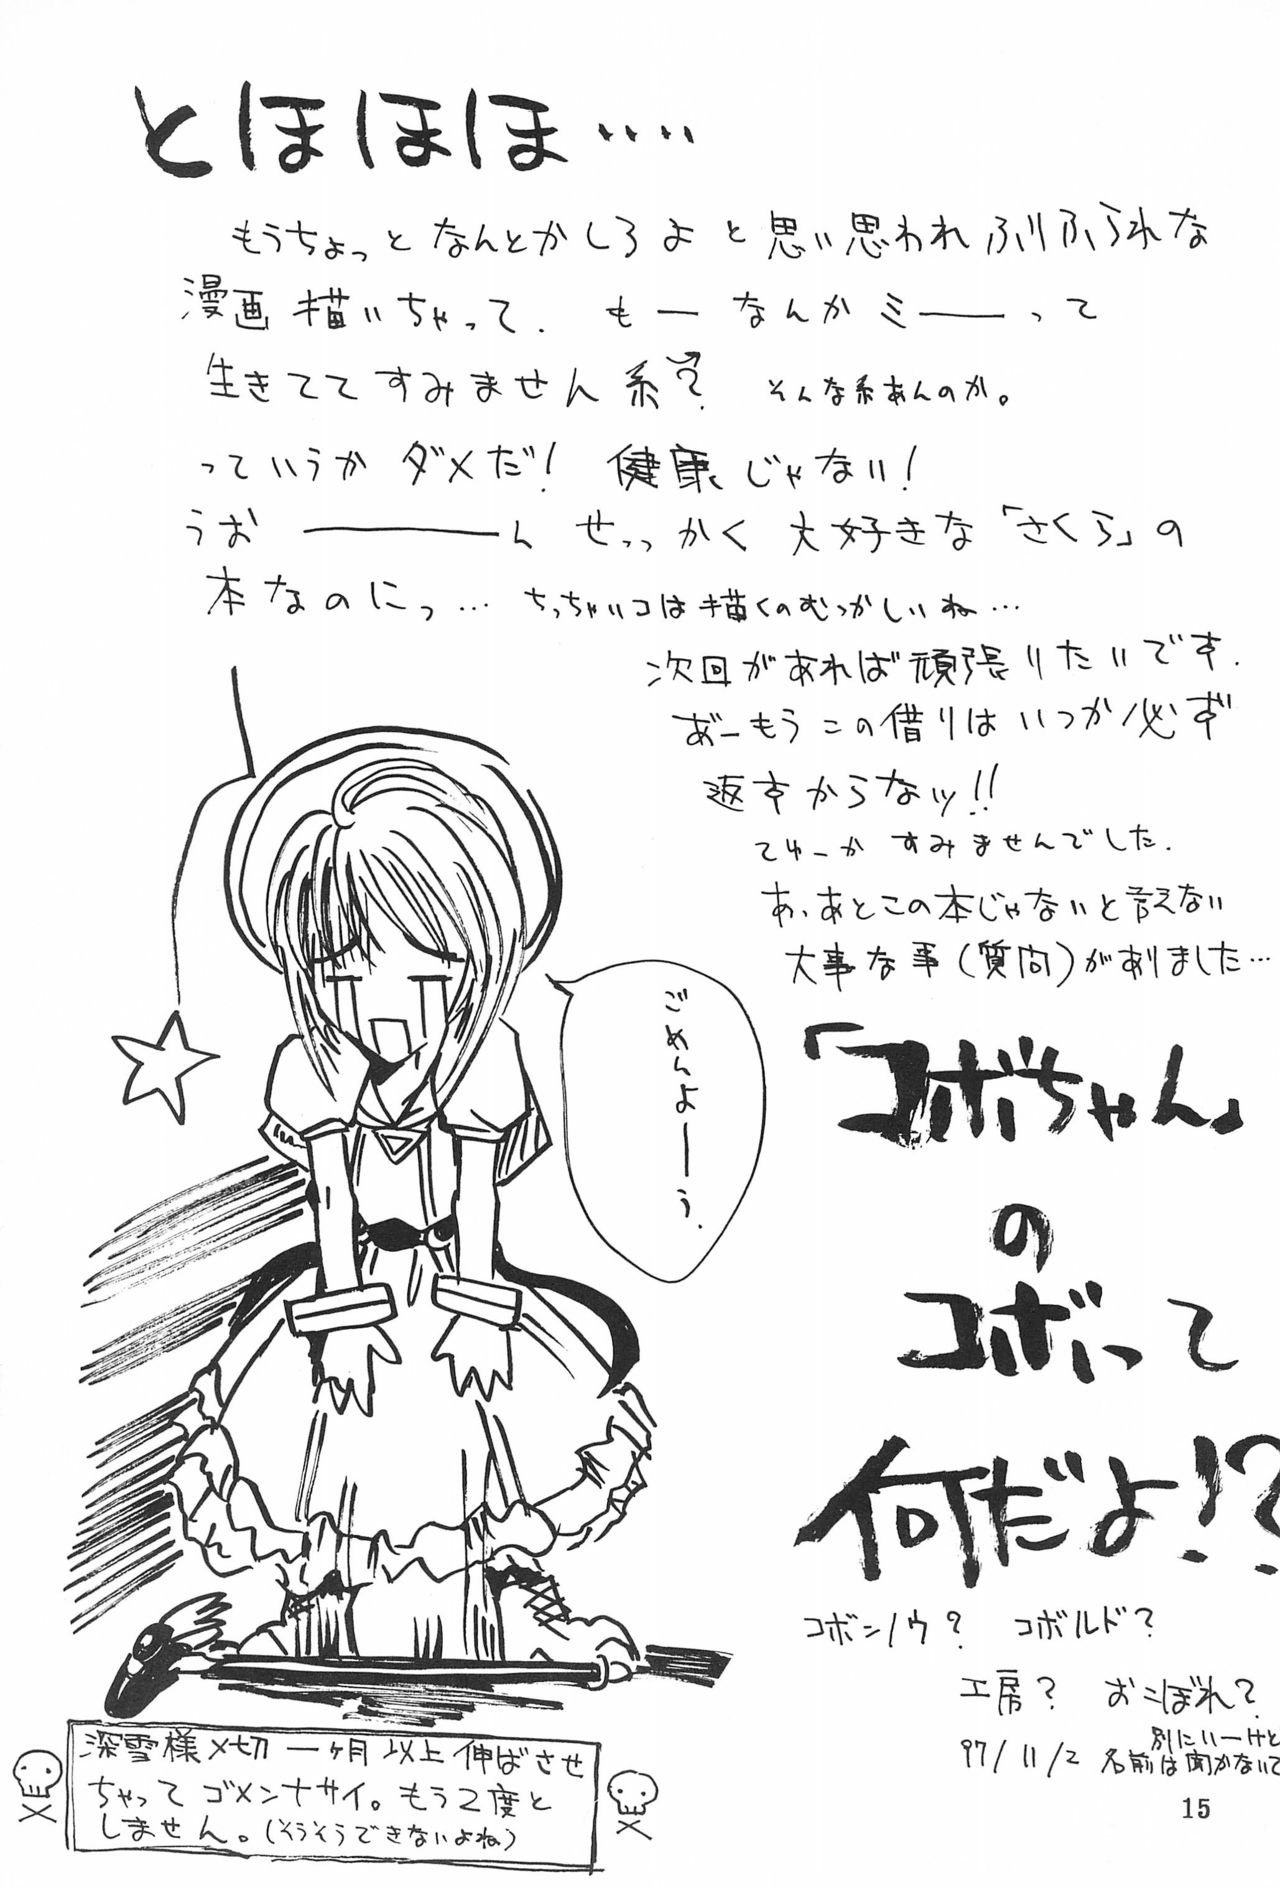 とほほほ‥‥
もうちょっとなんとかしろよと思い思われふりふられな
漫画描いちゃって. もーなんかミ――って
生きててすみません系? そんな系あんのか。
っていうかダメだ! 健康じゃない!
うお―――ん せっっかく大好きな「さくら」の
本なのにっ… ちっちゃいコは描くのむつかしいね…
次回があれば頑張りたいです.
あ゛ーもうこの借りはいつか必ず
返すからなッ!!
てゆーかすみませんでした.
あ、あとこの本じゃないと言えない
大事な事(質問)がありました…
「コボちゃん」
の
コボって
何だよ!?
コボンノウ? コボルド?
工房? おこぼれ?
別にいーけど
97/11/2 名前は聞かないで
ごめんよーう.
深雪様〆切一ヶ月以上伸ばさせ
ちゃってゴメンナサイ。もう2度と
しません。(そうそうできないよね)
15